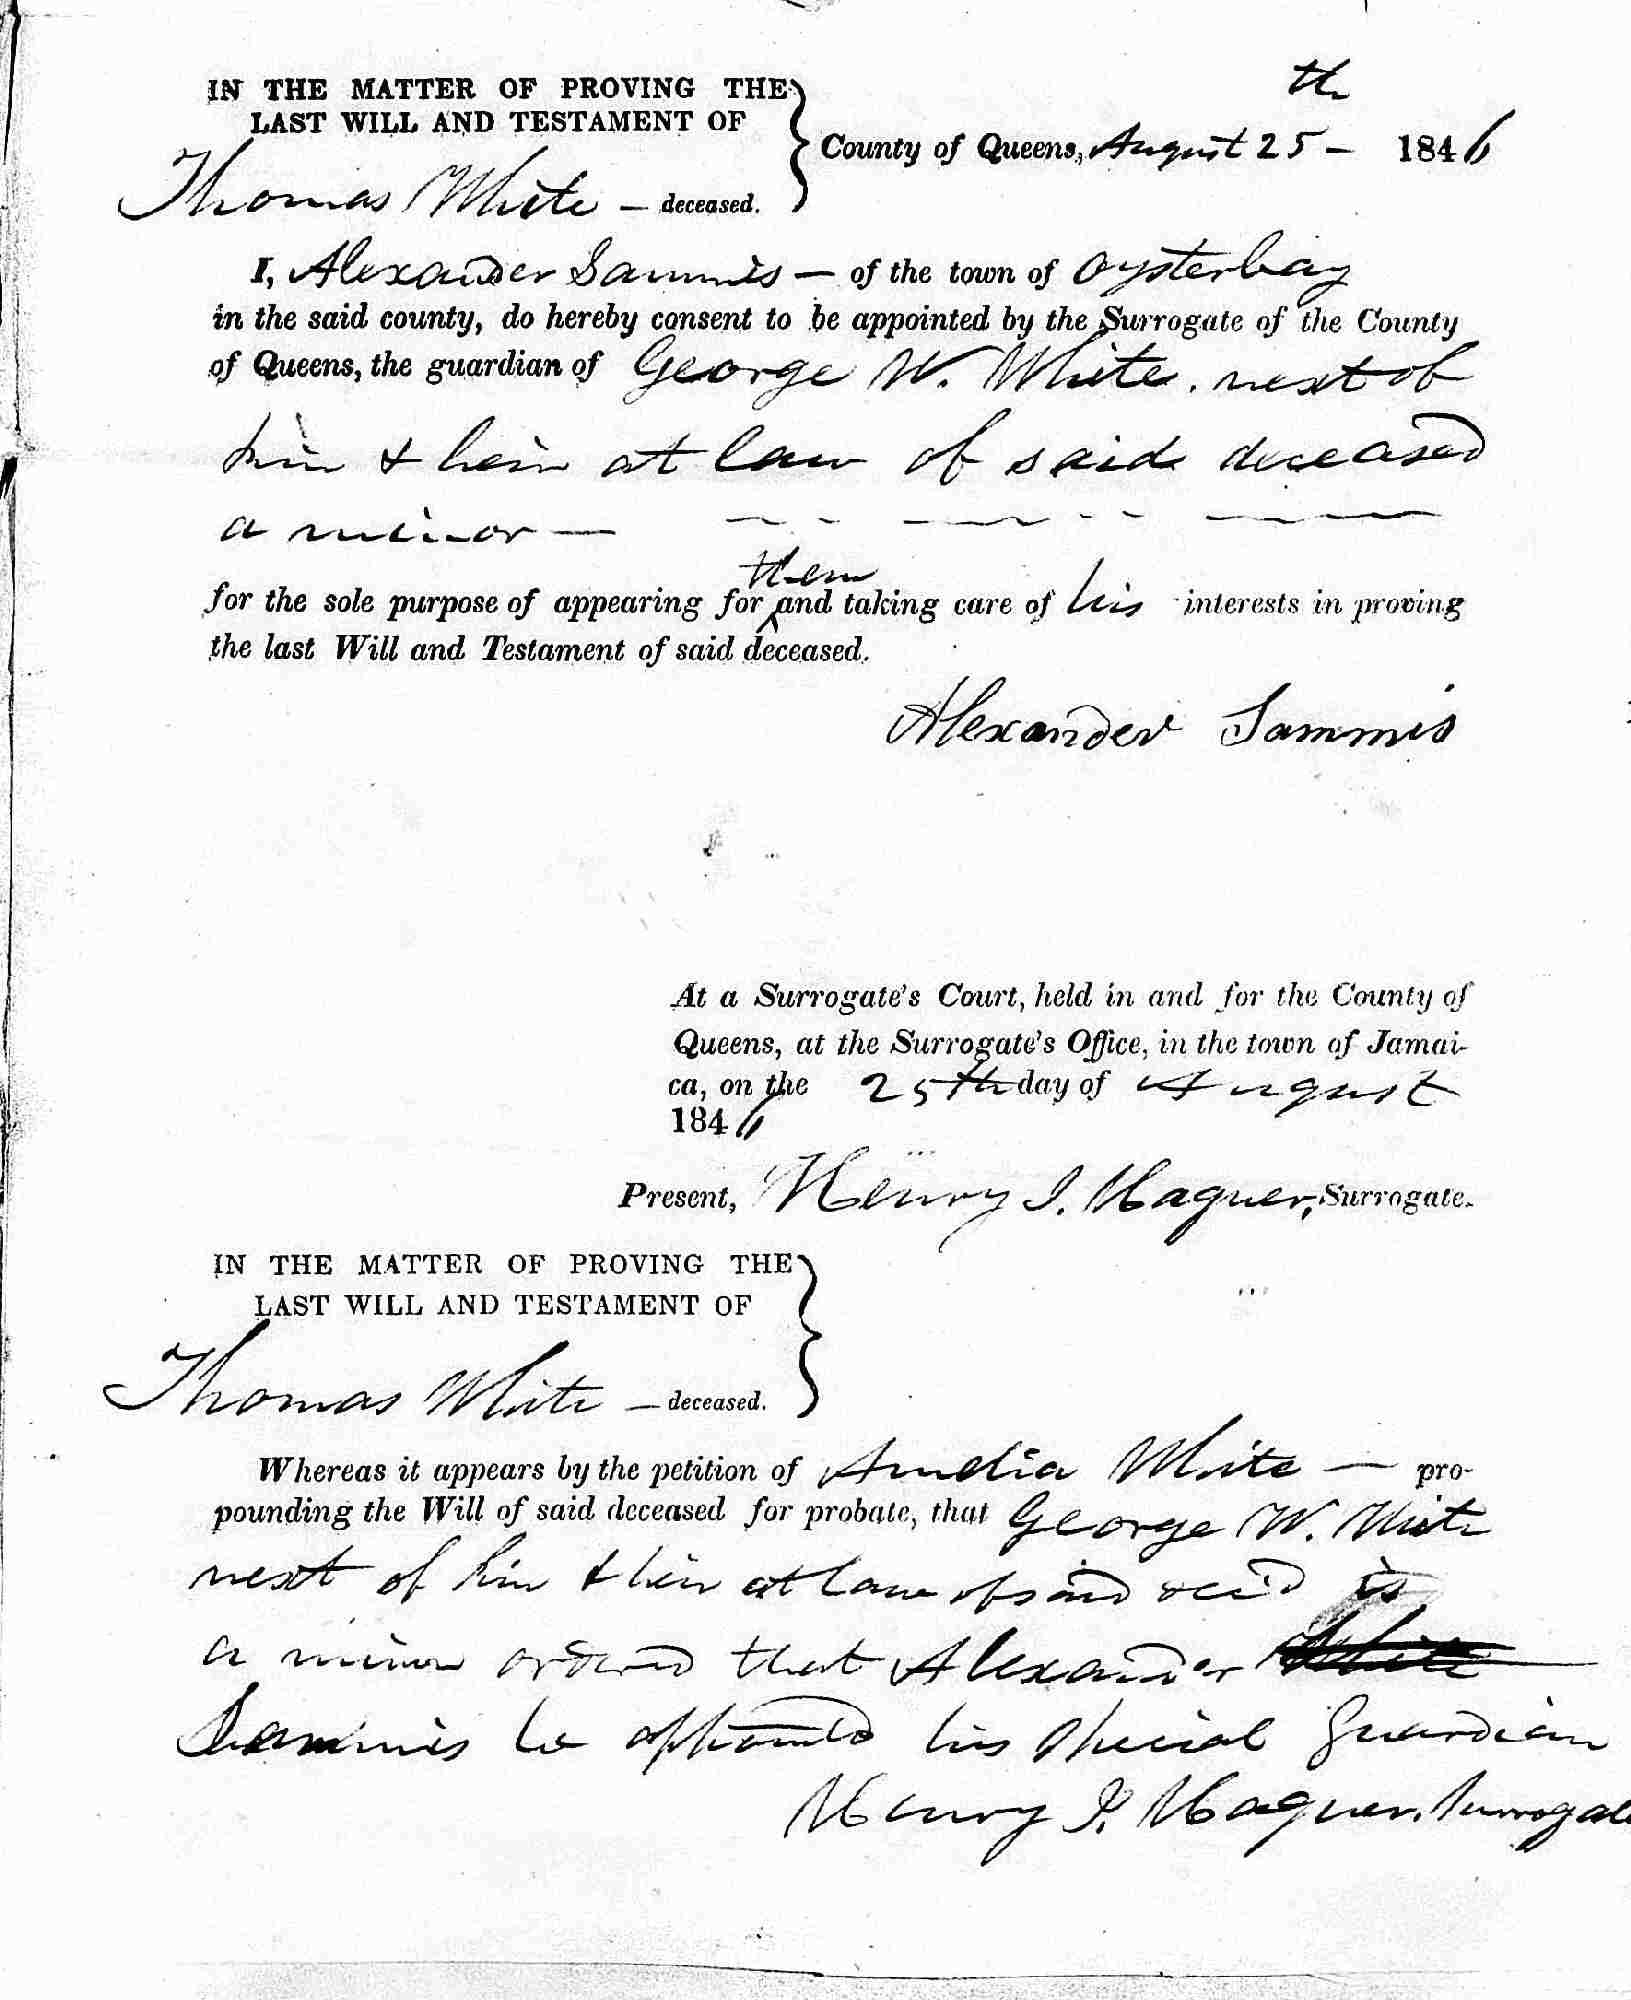 IN THE MATTER OF PROVING THE
LAST WILL AND TESTAMENT OF
Thomas White — deceased.
County of Queens, August 25th — 1846
I, Alexander Sammis — of the town of Oysterbay
in the said county, do hereby consent to be appointed by the Surrogate of the County
of Queens, the guardian of George W. White. next of
kin & heir at law of said deceased
a minor —
for the sole purpose of appearing for them and taking care of his interests in proving
the last Will and Testament of said deceased.
Alexander Sammis
At a Surrogate's Court, held in and for the County of
Queens, at the Surrogate's Office, in the town of Jamai-
ca, on the 25th day of August
1846
Present, Henry I. Hagner, Surrogate.
IN THE MATTER OF PROVING THE
LAST WILL AND TESTAMENT OF
Thomas White — deceased.
Whereas it appears by the petition of Amelia White — pro-
pounding the Will of said deceased for probate, that George W. White
next of kin & heir at law of said dec'd is
a minor ordered that Alexander White
Sammis be appointed his special Guardian
Henry I. Hagner, Surrogate